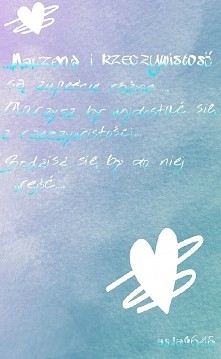 ...Marzenia i rzeczywistość
są zupełnie różne...
Marzysz by wydostać się
z rzeczywistości...
Budzisz się by do niej
wejść...